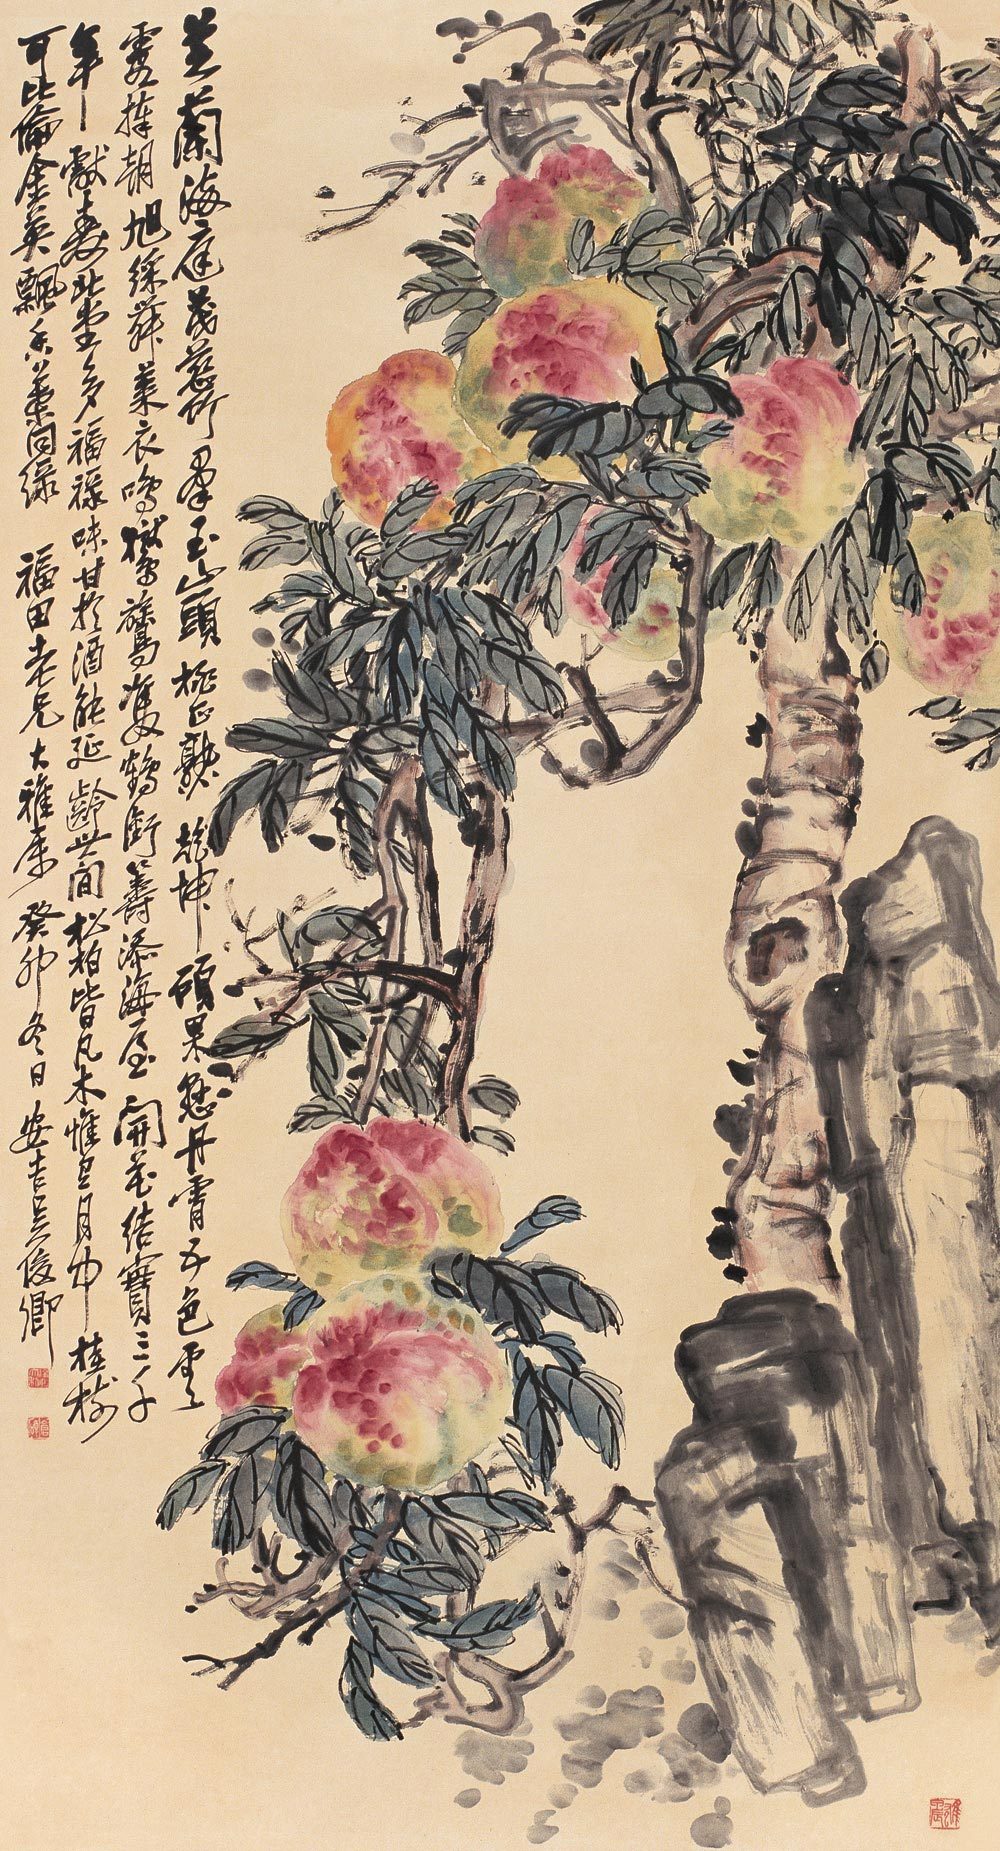 芝蘭海庭茂慈竹羣玉山頭桃正熟乾坤碩果懸丹霄五色雲
霞捧朝旭綵舞萊衣鳴嶽鶯雙鶴銜籌添海屋開花結實三千
年獻壽北堂多福祿味甘於酒能延齡世間松柏皆凡木惟月中桂樹
可比倫金英飄香葉同綠福田老兄大雅屬癸卯冬日安吉吳俊卿